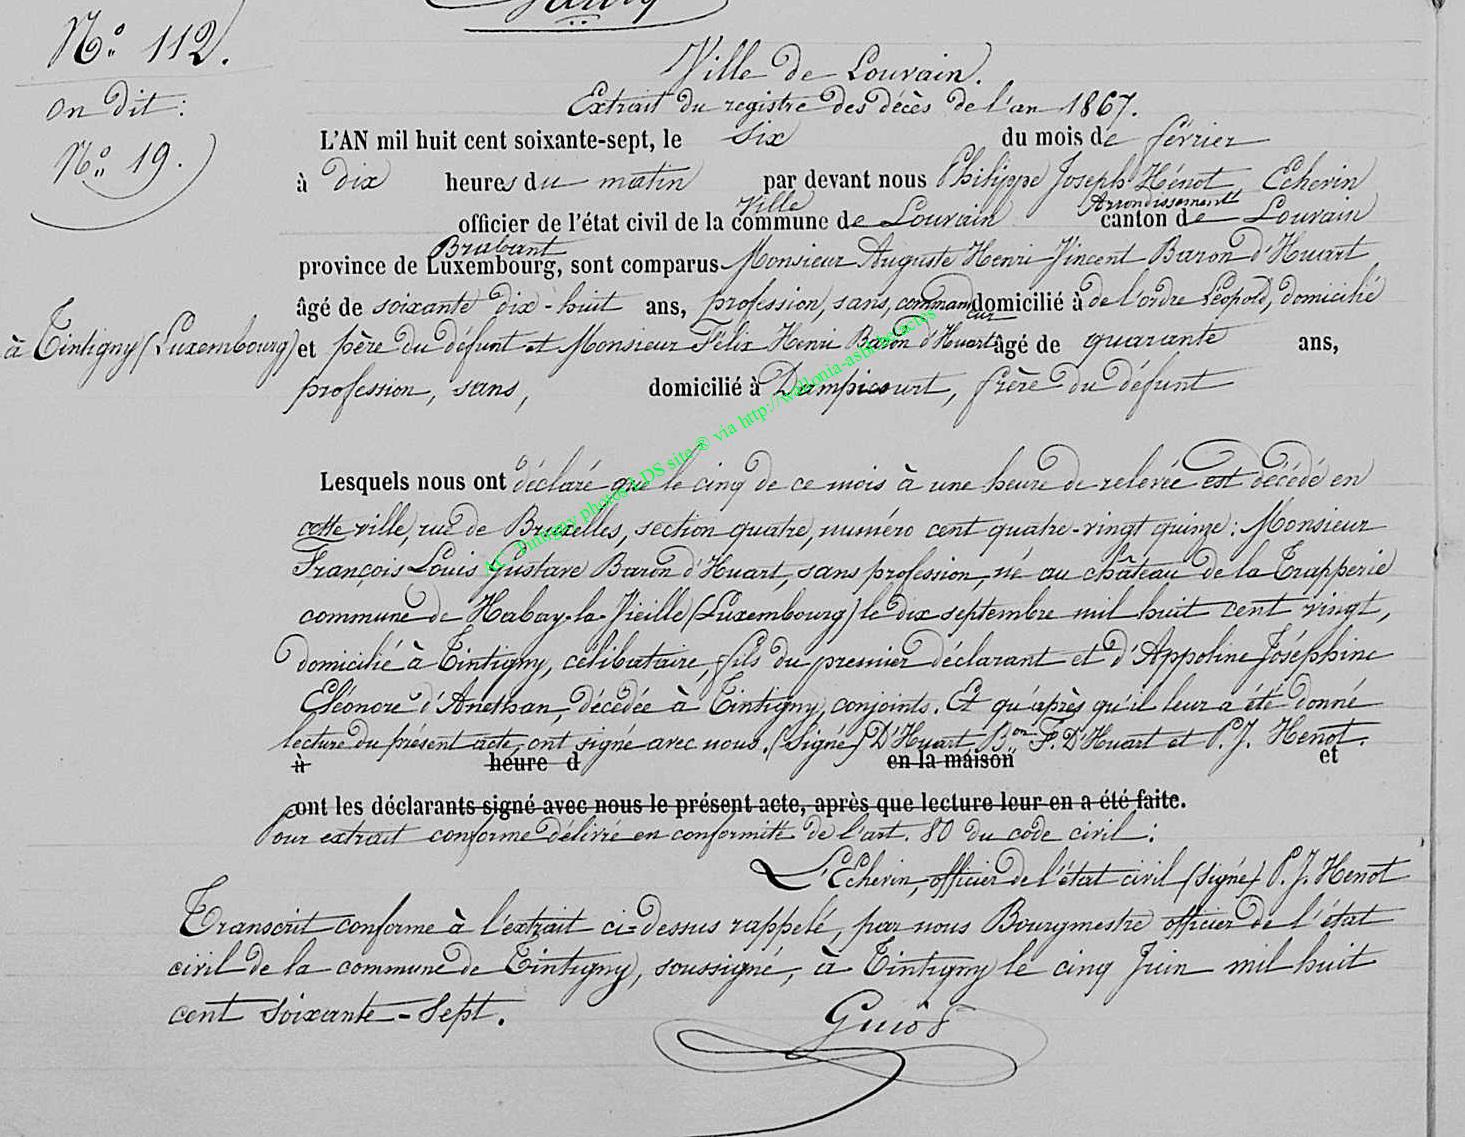 N° 112.
on dit:
N° 19.
Ville de Louvain.
Extrait du registre des décès de l'an 1867.
L'AN mil huit cent soixante-sept, le six du mois de février
à dix heures du matin par devant nous Philippe Joseph Hénot, Echevin
Ville Arrondissement
officier de l'état civil de la commune de Louvain canton de Louvain
Brabant
province de Luxembourg, sont comparus Monsieur Auguste Henri Vincent Baron d'Huart
âgé de soixante dix-huit ans, profession, sans, commandeur domicilié à de l'ordre Léopold, domicilié
à Tintigny (Luxembourg) et père du défunt et Monsieur Félix Henri Baron d'Huart âgé de quarante ans,
profession, sans, domicilié à Dampicourt, frère du défunt
Lesquels nous ont déclaré que le cinq de ce mois à une heure de relevée est décédé en
cette ville, rue de Bruxelles, section quatre, numéro cent quatre-vingt quinze: Monsieur
François Louis Gustave Baron d'Huart, sans profession, né au château de la Trapperie
commune de Habay-la-Vieille (Luxembourg) le dix septembre mil huit cent vingt,
domicilié à Tintigny, célibataire, fils du premier déclarant et d'Appoline Joséphine
Eléonore d'Anethan, décédée à Tintigny, conjoints. Et qu'après qu'il leur a été donné
lecture du présent acte, ont signé avec nous. (Signé) D'Huart, Bon F. D'Huart et P. J. Henot.
à heure d en la maison et
ont les déclarants signé avec nous le présent acte, après que lecture leur en a été faite.
Pour extrait conforme délivré en conformité de l'art. 80 du code civil:
L'Echevin, officier de l'état civil (signé) P. J. Henot
Transcrit conforme à l'extrait ci-dessus rappelé, par nous Bourgmestre officier de l'état
civil de la commune de Tintigny, soussigné, à Tintigny le cinq Juin mil huit
cent soixante-sept.
AC Tintigny photos LDS site ® via http://wallonia-asbl.be/actes